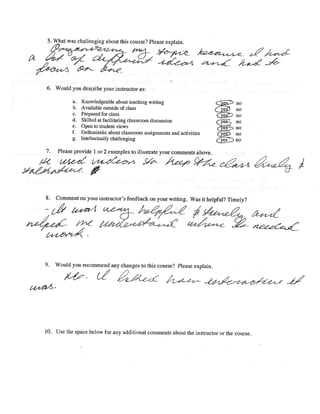 5. What was challenging about this course? Please explain.
Organizing my topic because I had
a lot of different ideas and had to
focus on one.
6. Would you describe your instructor as:
a. Knowledgeable about teaching writing yes no
b. Available outside of class yes no
c. Prepared for class yes no
d. Skilled at facilitating classroom discussion yes no
e. Open to student views yes no
f. Enthusiastic about classroom assignments and activities yes no
g. Intellectually challenging yes no
7. Please provide 1 or 2 examples to illustrate your comments above.
He used videos to keep the class lively &
8. Comment on your instructor's feedback on your writing. Was it helpful? Timely?
- It was very helpful & timely and
helped me understand where I needed
work.
9. Would you recommend any changes to this course? Please explain.
No. I liked how interactive it
was.
10. Use the space below for any additional comments about the instructor or the course.